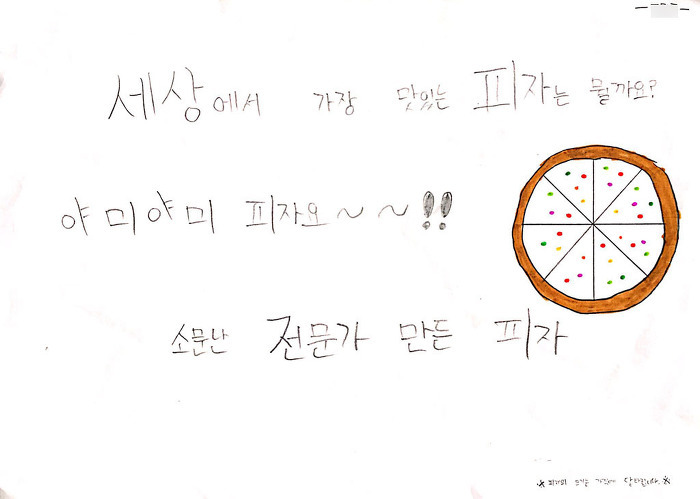 세상에서 가장 맛있는 피자는 뭘까요?
야미야미 피자요~~!!
소문난 전문가 만든 피자